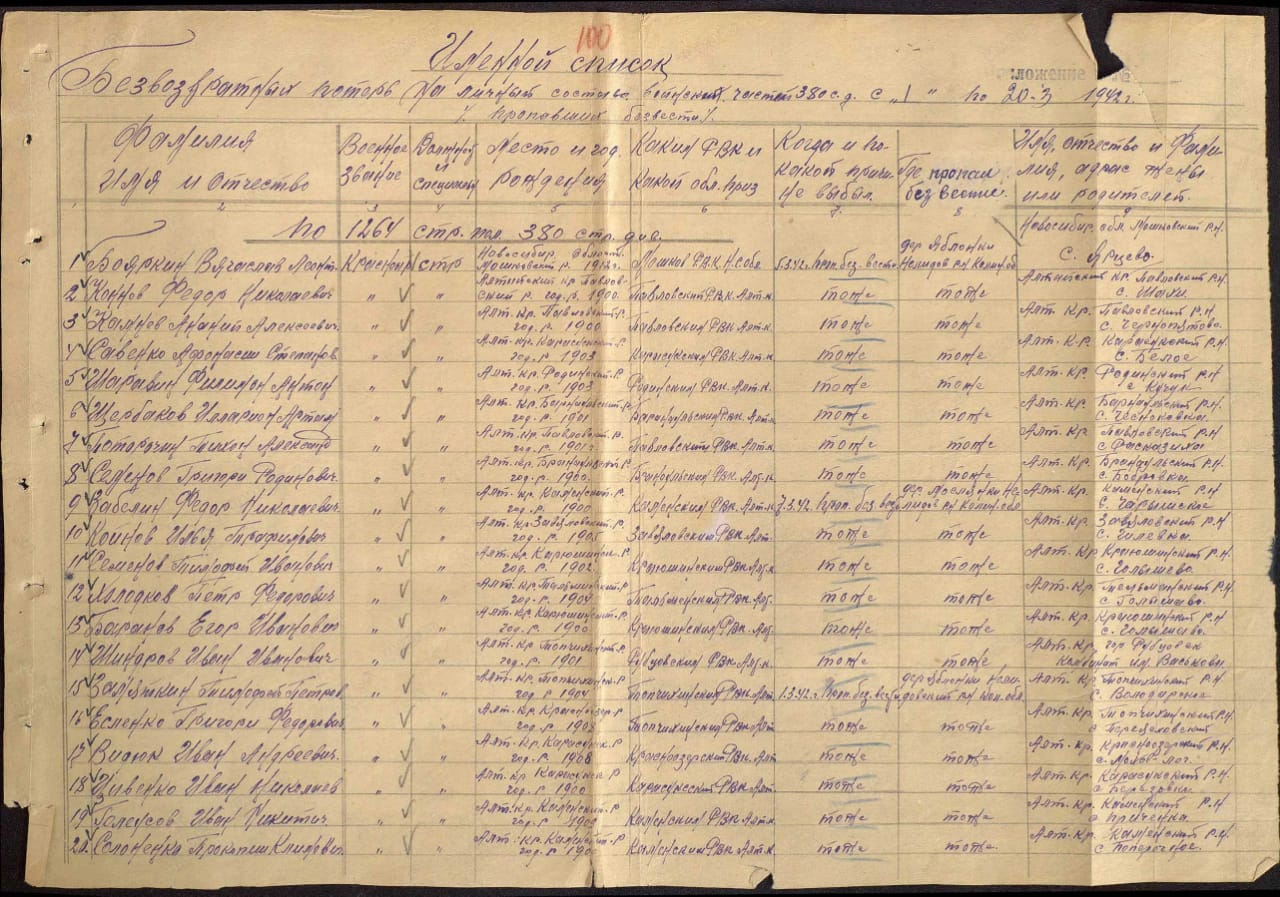 100
Именной список
приложение №
Безвозвратных потерь на личный состав воинских частей 380 с.д. с „1" по 20-3 1942 г.
/. пропавших безвести /.
Фамилия имя и отчество
Военное звание
Должност и специальн
Место и год рождения
Каким РВК и какой обл. приз
Когда и по какой причине выбыл
Где пропал без вести
Имя, отчество и фамилия, адрес жены или родителей
2 3 4 5 6 7 8 9
По 1264 стр. пол. 380 стр. див.
1 Бояркин Вячеслав Леонт. Красноар стр Новосибир. Область Мошковский р. 1912 г. Мошков РВК Н.С. обл. 5.3.42. Проп. без. вести дер Яблонки Нелидов р.н Калин. об Новосибир. обл Мошковский Р.Н с. Ярцево.
2 Коннов Федор Николаевич „ „ Алтайский кр Павловский р. год. р. 1900 Павловский РВК Алт. к. тоже тоже Алтайский кр. Павловский р.н с. Шахи.
3 Камнев Ананий Алексеевич „ „ Алт. Кр. Павловский р. год. р. 1900 Павловский РВК Алт. к. тоже тоже Алт. Кр. Павловский р.н с. Чернопятово.
4 Савенко Афонасий Степанов „ „ Алт. Кр. Карасукский р. год. р. 1903 Карасукский РВК Алт. к. тоже тоже Алт. Кр. Карасукский р.н с. Белое
5 Шаравин Филимон Антон „ „ Алт. Кр. Родинский р. год. р. 1903 Родинский РВК Алт. к. тоже тоже Алт. Кр. Родинский р.н с Кучук
6 Щербаков Илларион Артам „ „ Алт. Кр. Барнаульский р. год. р. 1901 Барнаульский РВК Алт. к. тоже тоже Алт. Кр. Барнаульский р.н с. Чесноковка
7 Поторочин Тихон Александр „ „ Алт. Кр. Павловский р. год. р. 1901 Павловский РВК Алт. к. тоже тоже Алт. Кр. Павловский р.н с Рассказиха
8 Семенов Григори Родинович „ „ Алт. кр. год. р. 1900 РВК Алт. к. тоже тоже Алт. Кр. р.н с. Бобровка
9 Забелин Федор Николаевич „ „ Алт. Кр. Каменский р. год. р. 1900 Каменский РВК Алт. к 7.3.42. Проп. без. вез дер. Маслянки Нелидов р.н Калин. обл Алт. Кр. Каменский р.н с.
10 Койнов Илья Трафимович „ „ Алт. Кр. Завьяловский р. год. р. Завьяловский РВК Алт. тоже тоже Алт. Кр. Завьяловский р.н с. Гилевка
11 Семенов Тимофей Иванович „ „ Алт. Кр. р. год. р. 1902 РВК Алт. к. тоже тоже Алт. Кр р.н
12 Холодков Петр Федорович „ „ Алт. Кр. Тальменский р. год. р. 1904 Тальменский РВК Алт. тоже тоже Алт. Кр. Тальменский р.н
13 Баранов Егор Иванович „ „ Алт. Кр. р. год. р. 1900 РВК Алт. тоже тоже Алт. Кр. р.н
14 Шиндров Иван Иванович „ „ Алт. Кр. Топчихинск. р год. р. 1901 Рубцовский РВК Алт. к. тоже тоже Алт. Кр. гор Рубцовск Комбинат им Васькова
15 Замяткин Тимофей Петров „ „ Алт. Кр. Топчихинск. р год. р. 1904 Топчихинский РВК Алт 1.3.42. Проп. без. вез дер Яблонки Алт. Кр. Топчихинский р.н с. Володарка
16 Есленко Григори Федорович „ „ Алт. Кр. год. р. Топчихинский РВК Алт тоже тоже Алт. Кр. Топчихинский р.н
17 Видюк Иван Андреевич. „ „ Алт. Кр. Карасукск. р год. р. Краснозерский РВК Алт тоже тоже Алт. Кр. Краснозерский р.н
18 Цивенко Иван Николаев „ „ Алт. Кр Карасукск. р год. р. 1900 Карасукский РВК Алт тоже тоже Алт. Кр. Карасукский р.н
19 Галоусов Иван Никитич „ „ Алт. Кр. Каменский р год. р. Каменский РВК Алт. к тоже тоже Алт. Кр. Каменский р.н
20. Солоненко Прокопии Климович „ „ Алт. Кр. Каменский р год. р. Каменский РВК Алт. к. тоже тоже Алт. Кр. Каменский р.н с Поперечное.